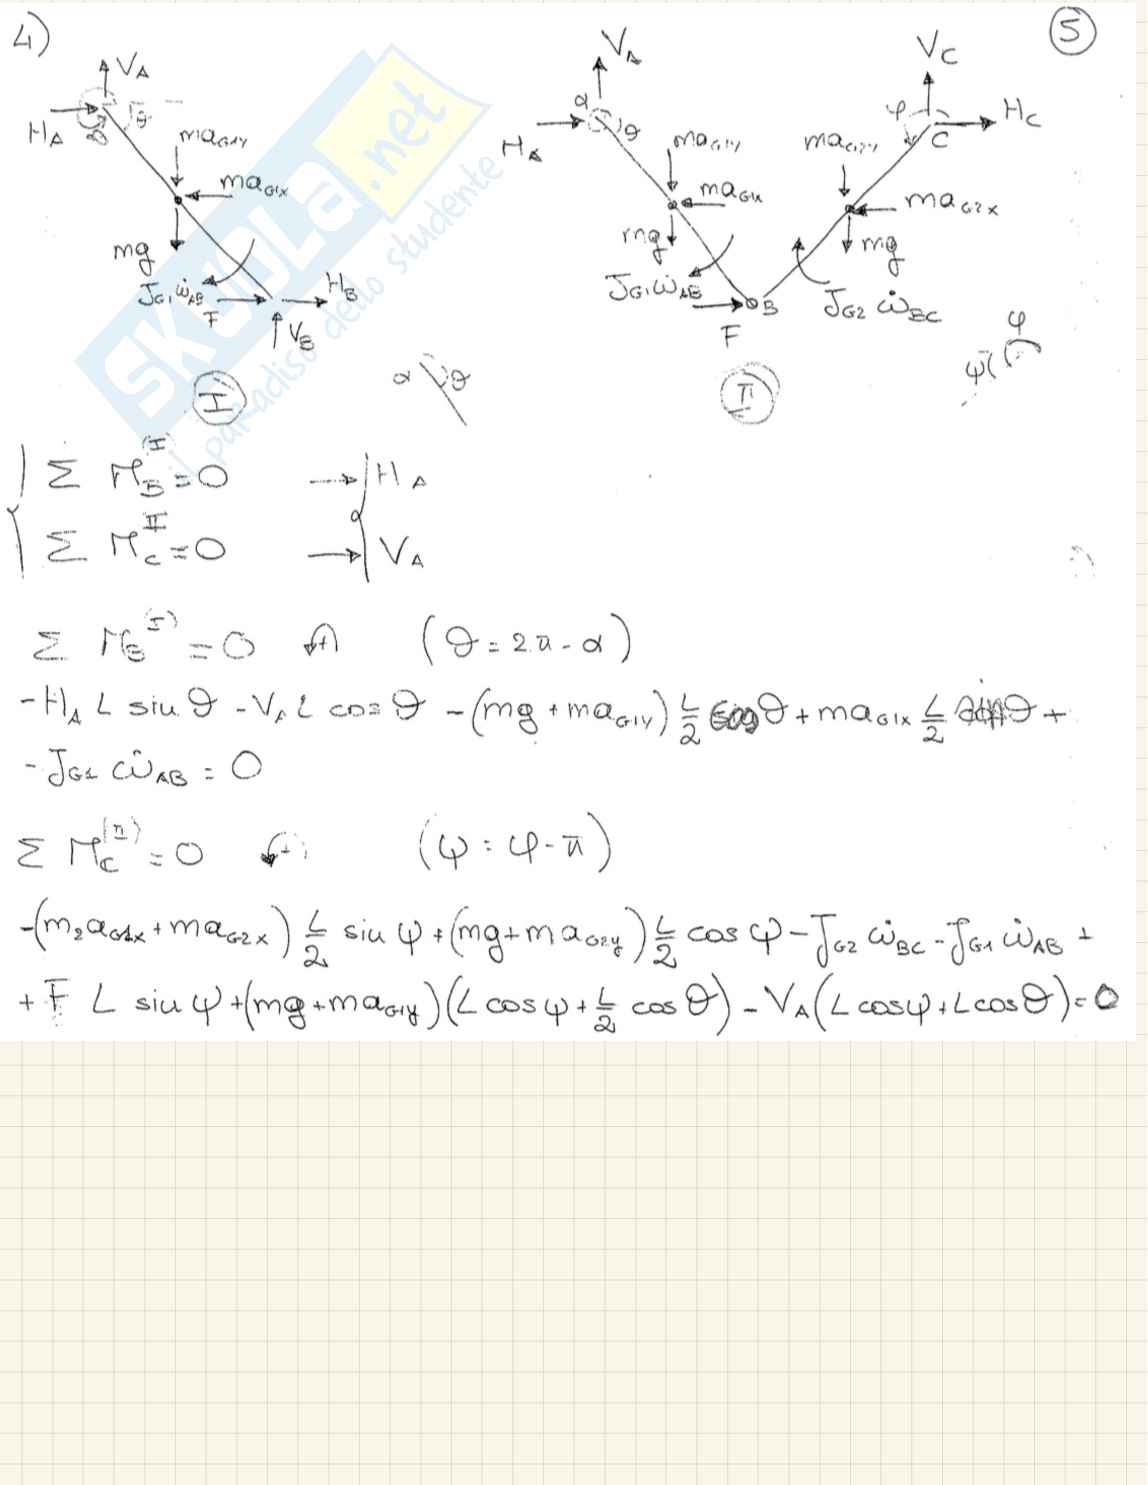 4)
5
V_A
H_A
θ
ma_G1Y
ma_G1X
mg
J_G1 ω̇_AB
F
H_B
V_B
I
V_A
α
θ
H_A
ma_G1Y
ma_G1X
mg
J_G1 ω̇_AB
F
B
V_C
φ
H_C
C
ma_G2Y
ma_G2X
mg
J_G2 ω̇_BC
II
α θ
ψ φ
SKUOLA.net
il paradiso dello studente
Σ M_B^(I) = 0 → H_A
Σ M_C^II = 0 → V_A
Σ M_B^(I) = 0 (θ = 2π - α)
-H_A L sin θ - V_A L cos θ - (mg + ma_G1Y) L/2 cos θ + ma_G1X L/2 sin θ +
- J_G1 ω̇_AB = 0
Σ M_C^(II) = 0 (ψ = φ - π)
-(m_2 a_G1x + ma_G2x) L/2 sin ψ + (mg + ma_G2y) L/2 cos ψ - J_G2 ω̇_BC - J_G1 ω̇_AB +
+ F L sin ψ + (mg + ma_G1y)(L cos ψ + L/2 cos θ) - V_A (L cos ψ + L cos θ) = 0